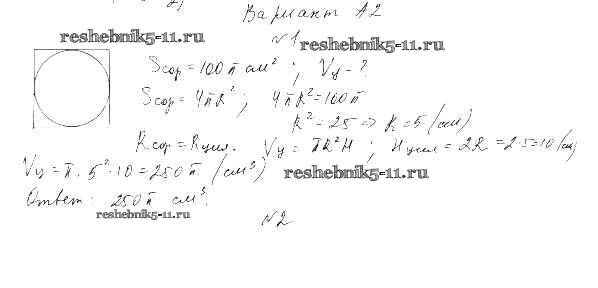 Вариант А2
reshebnik5-11.ru
№1
reshebnik5-11.ru
Sсфр = 100π см²; Vц - ?
Sсфр = 4πR²; 4πR² = 100π
R² = 25 => R = 5 (см)
Rсфр = Rцил. Vц = πR²H; Hцил = 2R = 2·5 = 10 (см)
Vц = π · 5² · 10 = 250π (см³)
reshebnik5-11.ru
Ответ: 250π см³.
reshebnik5-11.ru
№2